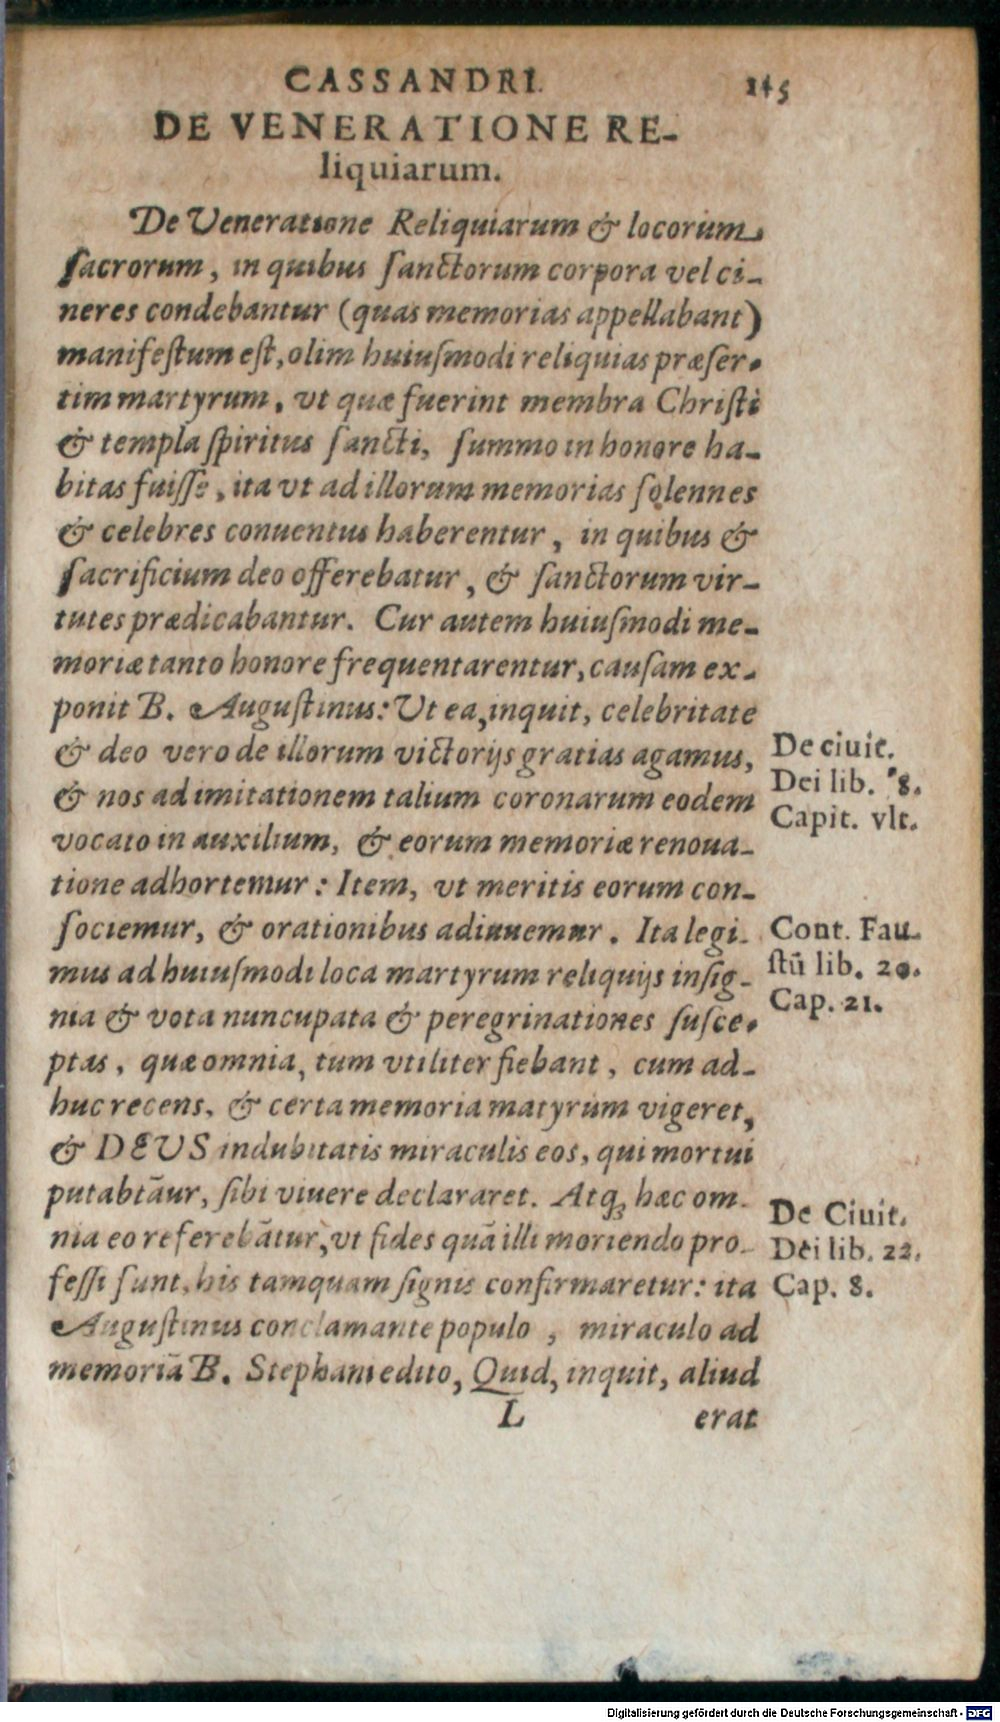 CASSANDRI. 145
DE VENERATIONE RE-
liquiarum.
De Veneratione Reliquiarum & locorum
ſacrorum, in quibus ſanctorum corpora vel ci-
neres condebantur (quas memorias appellabant)
manifeſtum eſt, olim huiuſmodi reliquias præſer-
tim martyrum, vt quæ fuerint membra Chriſti
& templa ſpiritus ſancti, ſummo in honore ha-
bitas fuiſſe, ita vt ad illorum memorias ſolennes
& celebres conuentus haberentur, in quibus &
ſacrificium deo offerebatur, & ſanctorum vir-
tutes prædicabantur. Cur autem huiuſmodi me-
moriæ tanto honore frequentarentur, cauſam ex-
ponit B. Auguſtinus: Ut ea, inquit, celebritate
& deo vero de illorum victorijs gratias agamus,
& nos ad imitationem talium coronarum eodem
vocato in auxilium, & eorum memoriæ renoua-
tione adhortemur: Item, vt meritis eorum con-
ſociemur, & orationibus adiuuemur. Ita legi-
mus ad huiuſmodi loca martyrum reliquijs inſig-
nia & vota nuncupata & peregrinationes ſuſce-
ptas, quæ omnia, tum vtiliter fiebant, cum ad-
huc recens, & certa memoria matyrum vigeret,
& DEUS indubitatis miraculis eos, qui mortui
putabtãur, ſibi viuere declararet. Atq; hæc om-
nia eo referebãtur, vt fides quã illi moriendo pro-
feſſi ſunt, his tamquam ſignis confirmaretur: ita
Auguſtinus conclamante populo, miraculo ad
memoriã B. Stephani edito, Quid, inquit, aliud
L erat
De ciuit.
Dei lib. 8.
Capit. vlt.
Cont. Fau-
ſtũ lib. 20.
Cap. 21.
De Ciuit.
Dei lib. 22.
Cap. 8.
Digitalisierung gefördert durch die Deutsche Forschungsgemeinschaft - DFG